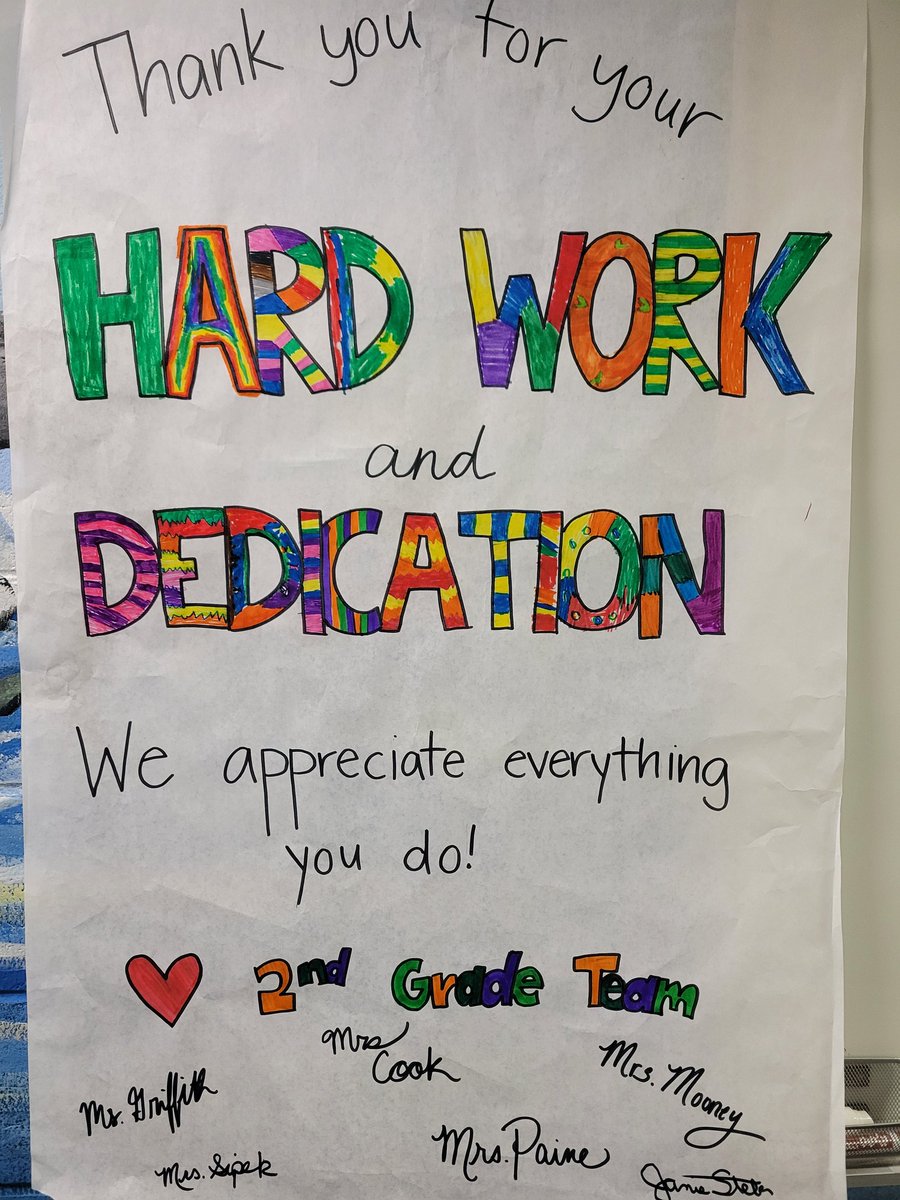 Thank you for your
HARD WORK
and
DEDICATION
We appreciate everything
you do!
2nd Grade Team
Mrs Cook
Mrs. Mooney
Ms. Griffith
Mrs. Paine
Mrs. Sipek